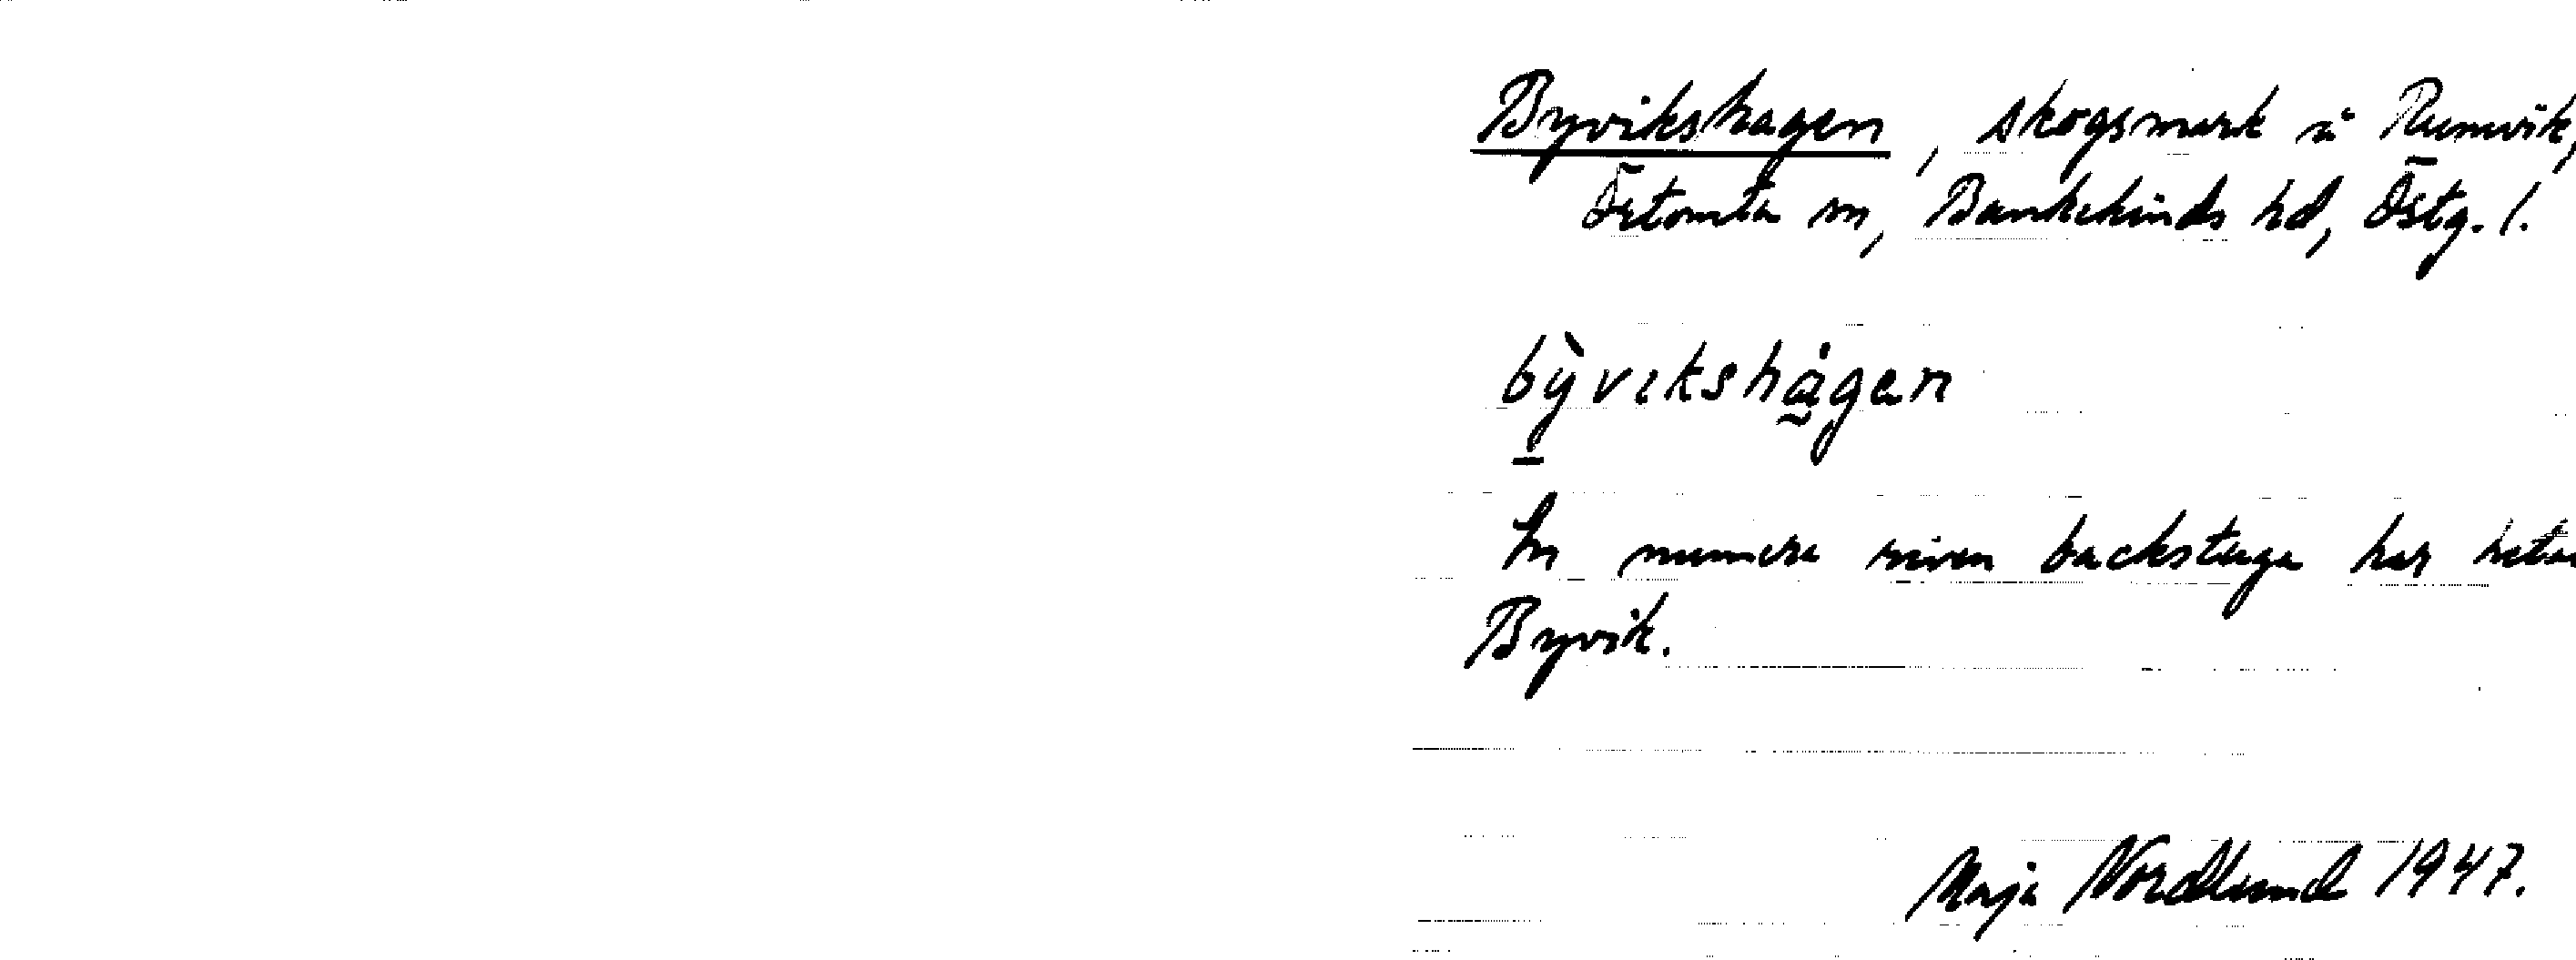 Byvikshagen, skogsmark å Rumvik,
Örtomta sn, Bankekinds hd, Östg. l.
bỳvikshágen
En numera riven backstuga har hetat
Byvik.
Maja Nordlund 1947.